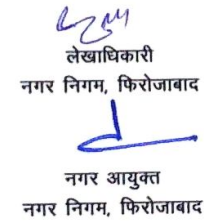 लेखाधिकारी
नगर निगम, फिरोजाबाद
नगर आयुक्त
नगर निगम, फिरोजाबाद